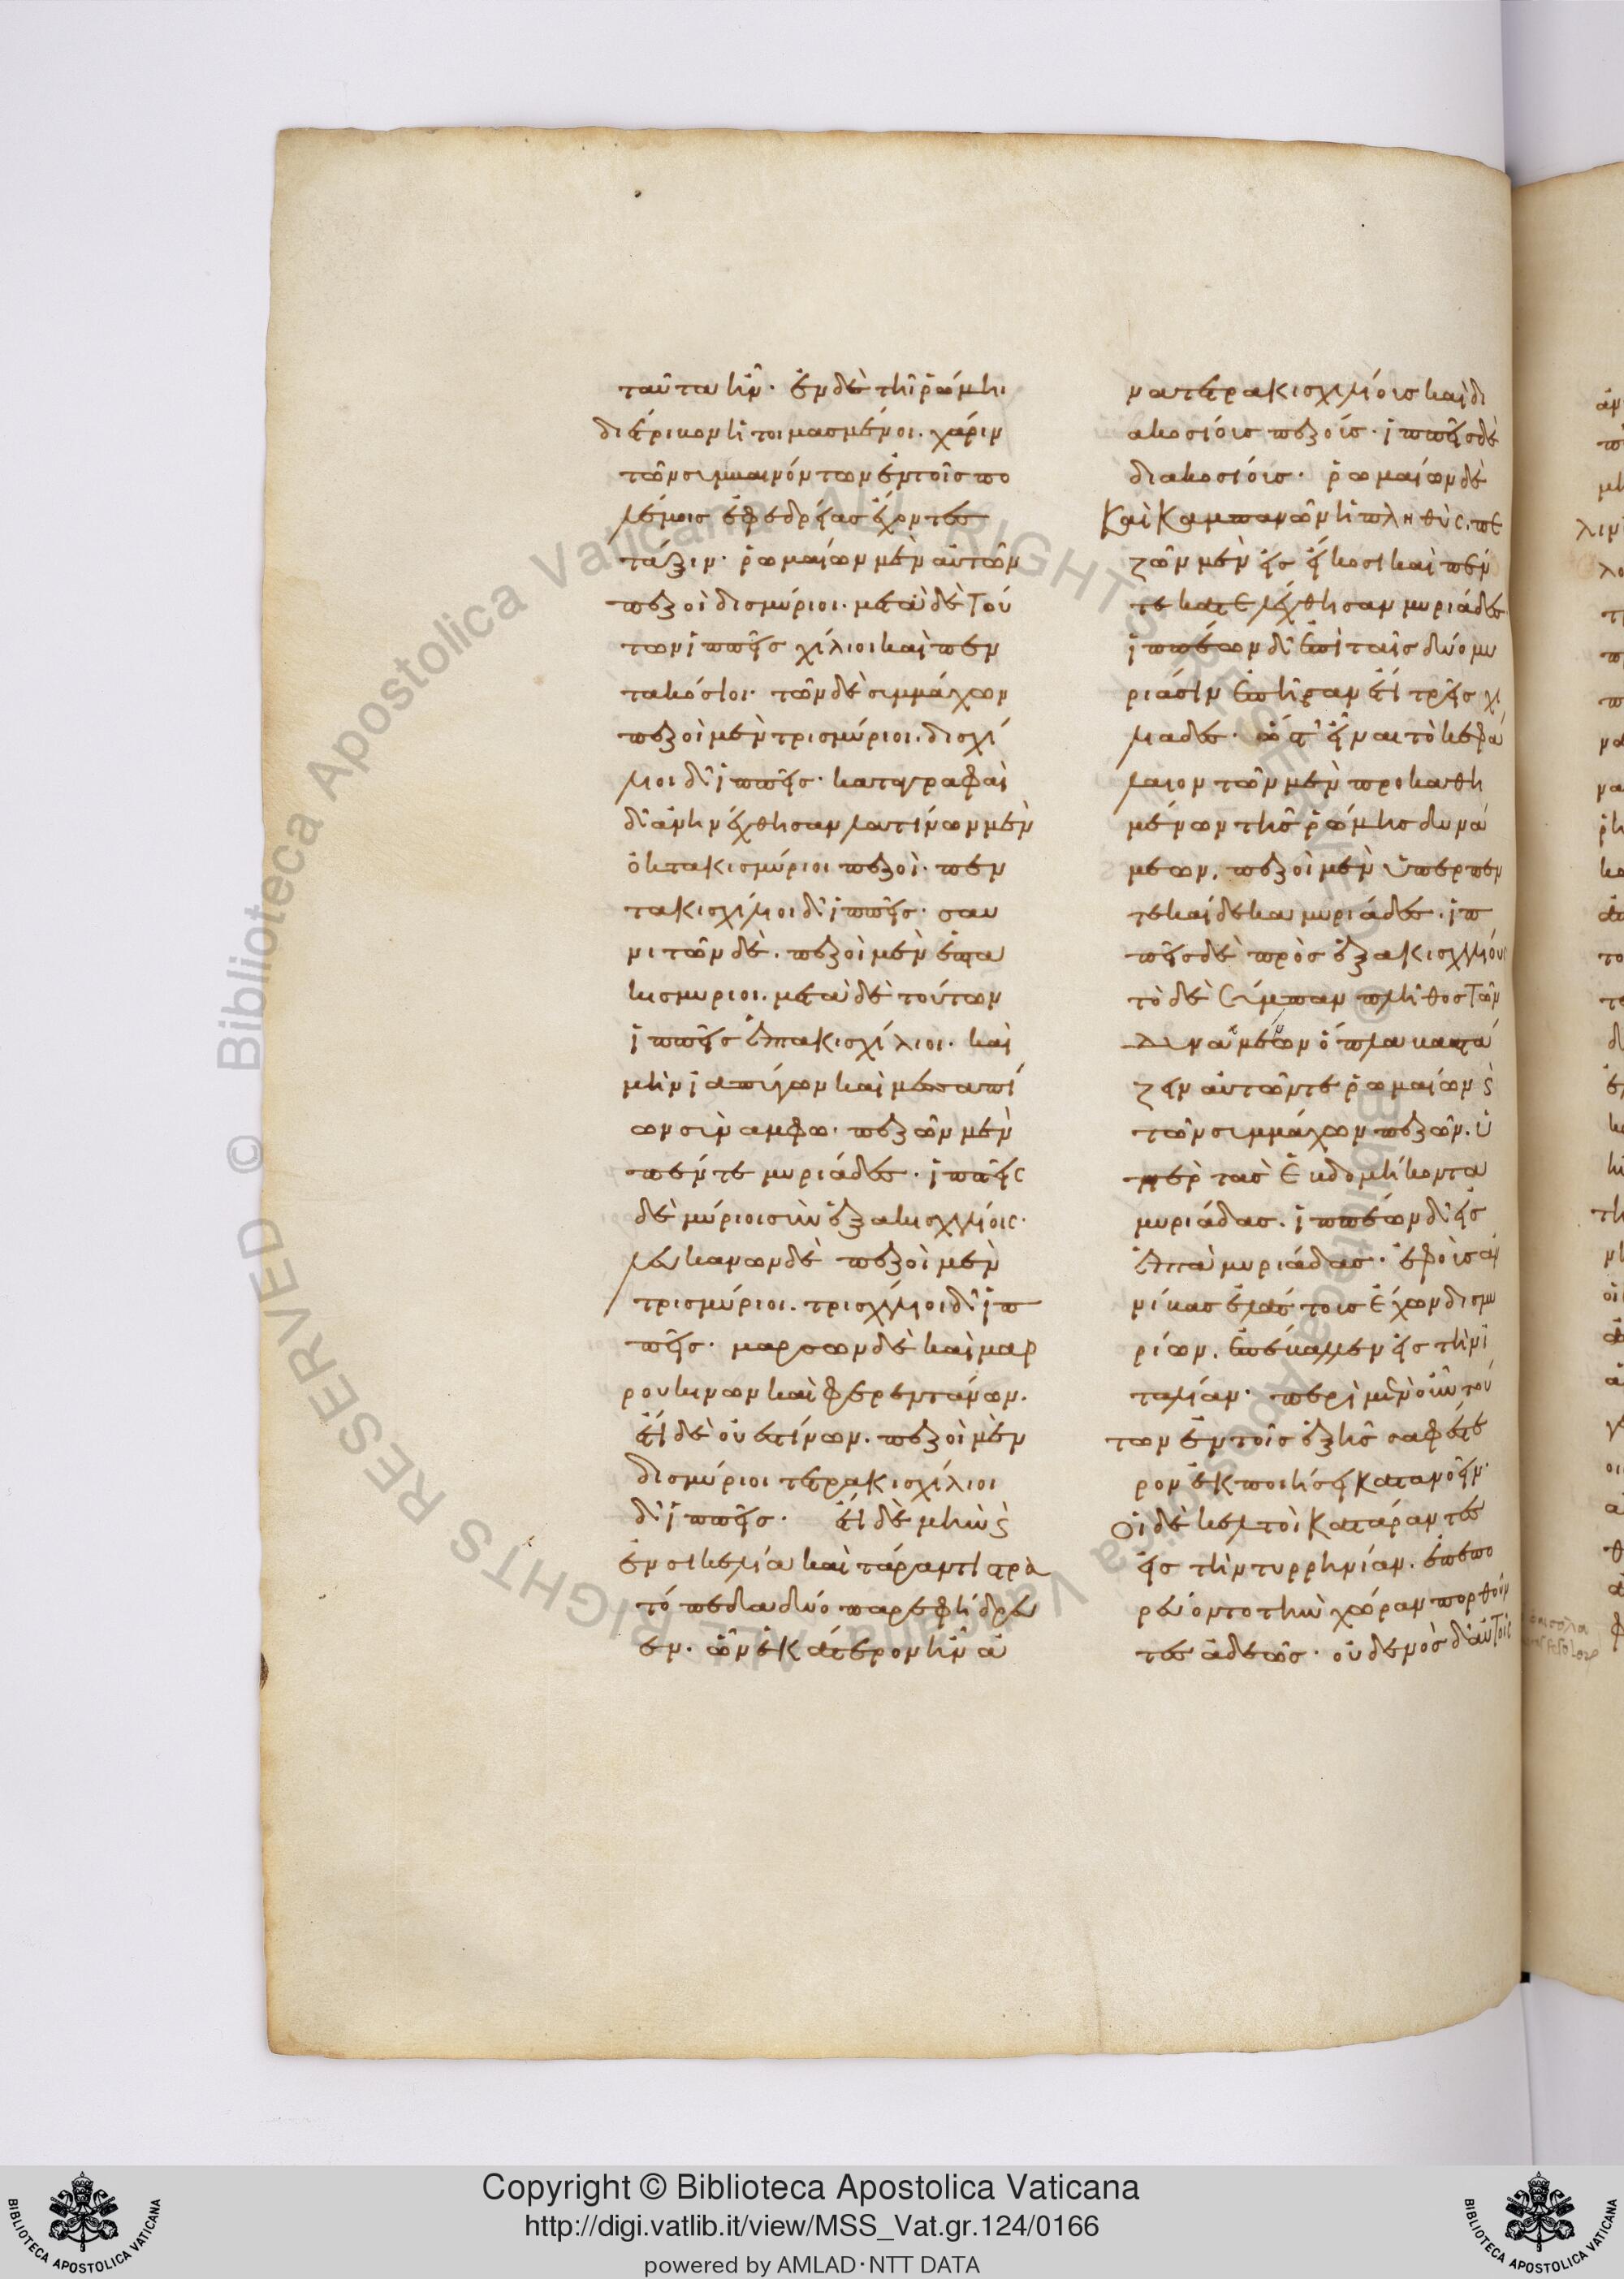 ταῦτα ἦν. ἐν δὲ τῆι ῥώμηι
διέτριβον ἡτοιμασμένοι. χάριν
τῶν συμβαινόντων ἐν τοῖς πο
λέμοις ἐφεδρείας ἔχοντες
τάξιν. ῥωμαίων μὲν αὐτῶν
πεζοὶ δισμύριοι. μετὰ δὲ τού
των ἱππεῖς χίλιοι καὶ πεν
τακόσιοι. τῶν δὲ συμμάχων
πεζοὶ μὲν τρισμύριοι. δισχί
λιοι δ' ἱππεῖς. καταγραφαὶ
δ' ἀνηνέχθησαν λατίνων μὲν
ὀκτακισμύριοι πεζοί. πεν
τακισχίλιοι δ' ἱππεῖς. σαυ
νιτῶν δὲ. πεζοὶ μὲν ἑπτα
κισμυριοι. μετὰ δὲ τούτων
ἱππεῖς ἑπτακισχίλιοι. καὶ
μὴν ἰαπύγων καὶ μεσαπί
ων σὺν αμφω. πεζῶν μὲν
πέντε μυριάδες. ἱππεῖς
δὲ μύριοι σὺν ἑξακισχιλίοις.
λευκανων δὲ πεζοὶ μὲν
τρισμύριοι. τρισχίλιοι δ' ἱπ
πεῖς. μαρσων δὲ καὶ μαρ
ρουκινων καὶ φερεντάνων.
ἔτι δὲ οὐεστίνων. πεζοὶ μὲν
δισμύριοι τετρακισχίλιοι
δ' ἱππεῖς. ἔτι δὲ μὴν ϛ
ἐν σικελία καὶ τάραντι στρα
τόπεδα δύο παρεφήδρευ
εν. ὧν ἑκάτερον ἦν ἀ
να τετρακισχιλίοις καὶ δι
ακοσίοις πεζοῖς. ἱππεῖς δὲ
διακοσίοις. ῥωμαίων δὲ
Καὶ Καμπανῶν ἡ πληθὺς. πε
ζῶν μὲν εἰς εἴκοσι καὶ πέν
τε κατελέχθησαν μυριάδες
ἱππέων δ' ἐπὶ ταῖς δύο μυ
ριάσιν ἐπῆσαν ἔτι τρεῖς χι
λιάδες. ὥστ' εἶναι τὸ κεφά
λαιον τῶν μὲν προκαθη
μένων τῆς ῥώμης δυνά
μεων. πεζοὶ μὲν ὑπερ πεν
τεκαίδεκα μυριάδες. ἱπ
πεῖς δὲ πρὸς ἑξακισχιλίους
τὸ δὲ σύμπαν πλῆθος τῶν
δυναμένων ὅπλα βαστά
ζειν αὐτῶν τε ῥωμαίων ϛ
τῶν συμμάχων πεζῶν. ὑ
περ τας ἑβδομήκοντα
μυριάδας. ἱππέων δ' εἰς
ἑπτὰ μυριάδας. ἐφ' οἷς ἀν
νίβας ἐλάττοις ἔχων δισμυ
ρίων. ἐπέβαλλεν εἰς τὴν ἰ
ταλίαν. περὶ μὲν οὖν τού
των ἐν τοῖς ἑξῆς σαφέστε
ρον ἐκποιήσει κατανοεῖν.
Οἱ δὲ κελτοὶ κατάραντες
εἰς τὴν τυρρηνίαν. ἐπεπο
ρεύοντο τὴν χώραν πορθοῦν
τες ἀδεῶς. οὐδενὸς δ' αὐτοῖς